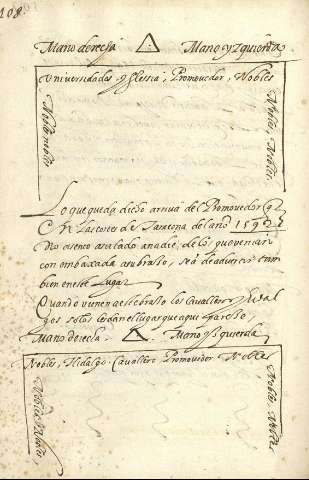 108.
Mano derecha Mano yzquierda
Universidades, Yglessia, Promovedor, Nobles
Nobles nobles
Nobles, Nobles
Lo que queda dicho arriva del Promovedor q
en las cortes de Taraçona del año 1592
No asiento a su lado a nadie, de los que venian
con embaxada a su brasso, se a de advertir tam
bien en este lugar
Quando vienen a este brasso los Cavalleros y hidal
gos solos les dan el lugar que aqui parese,
Mano derecha Mano yzquierda
Nobles, Hidalgo, Cavallero Promovedor Nobles
Nobles Nobles,
Nobles, Nobles